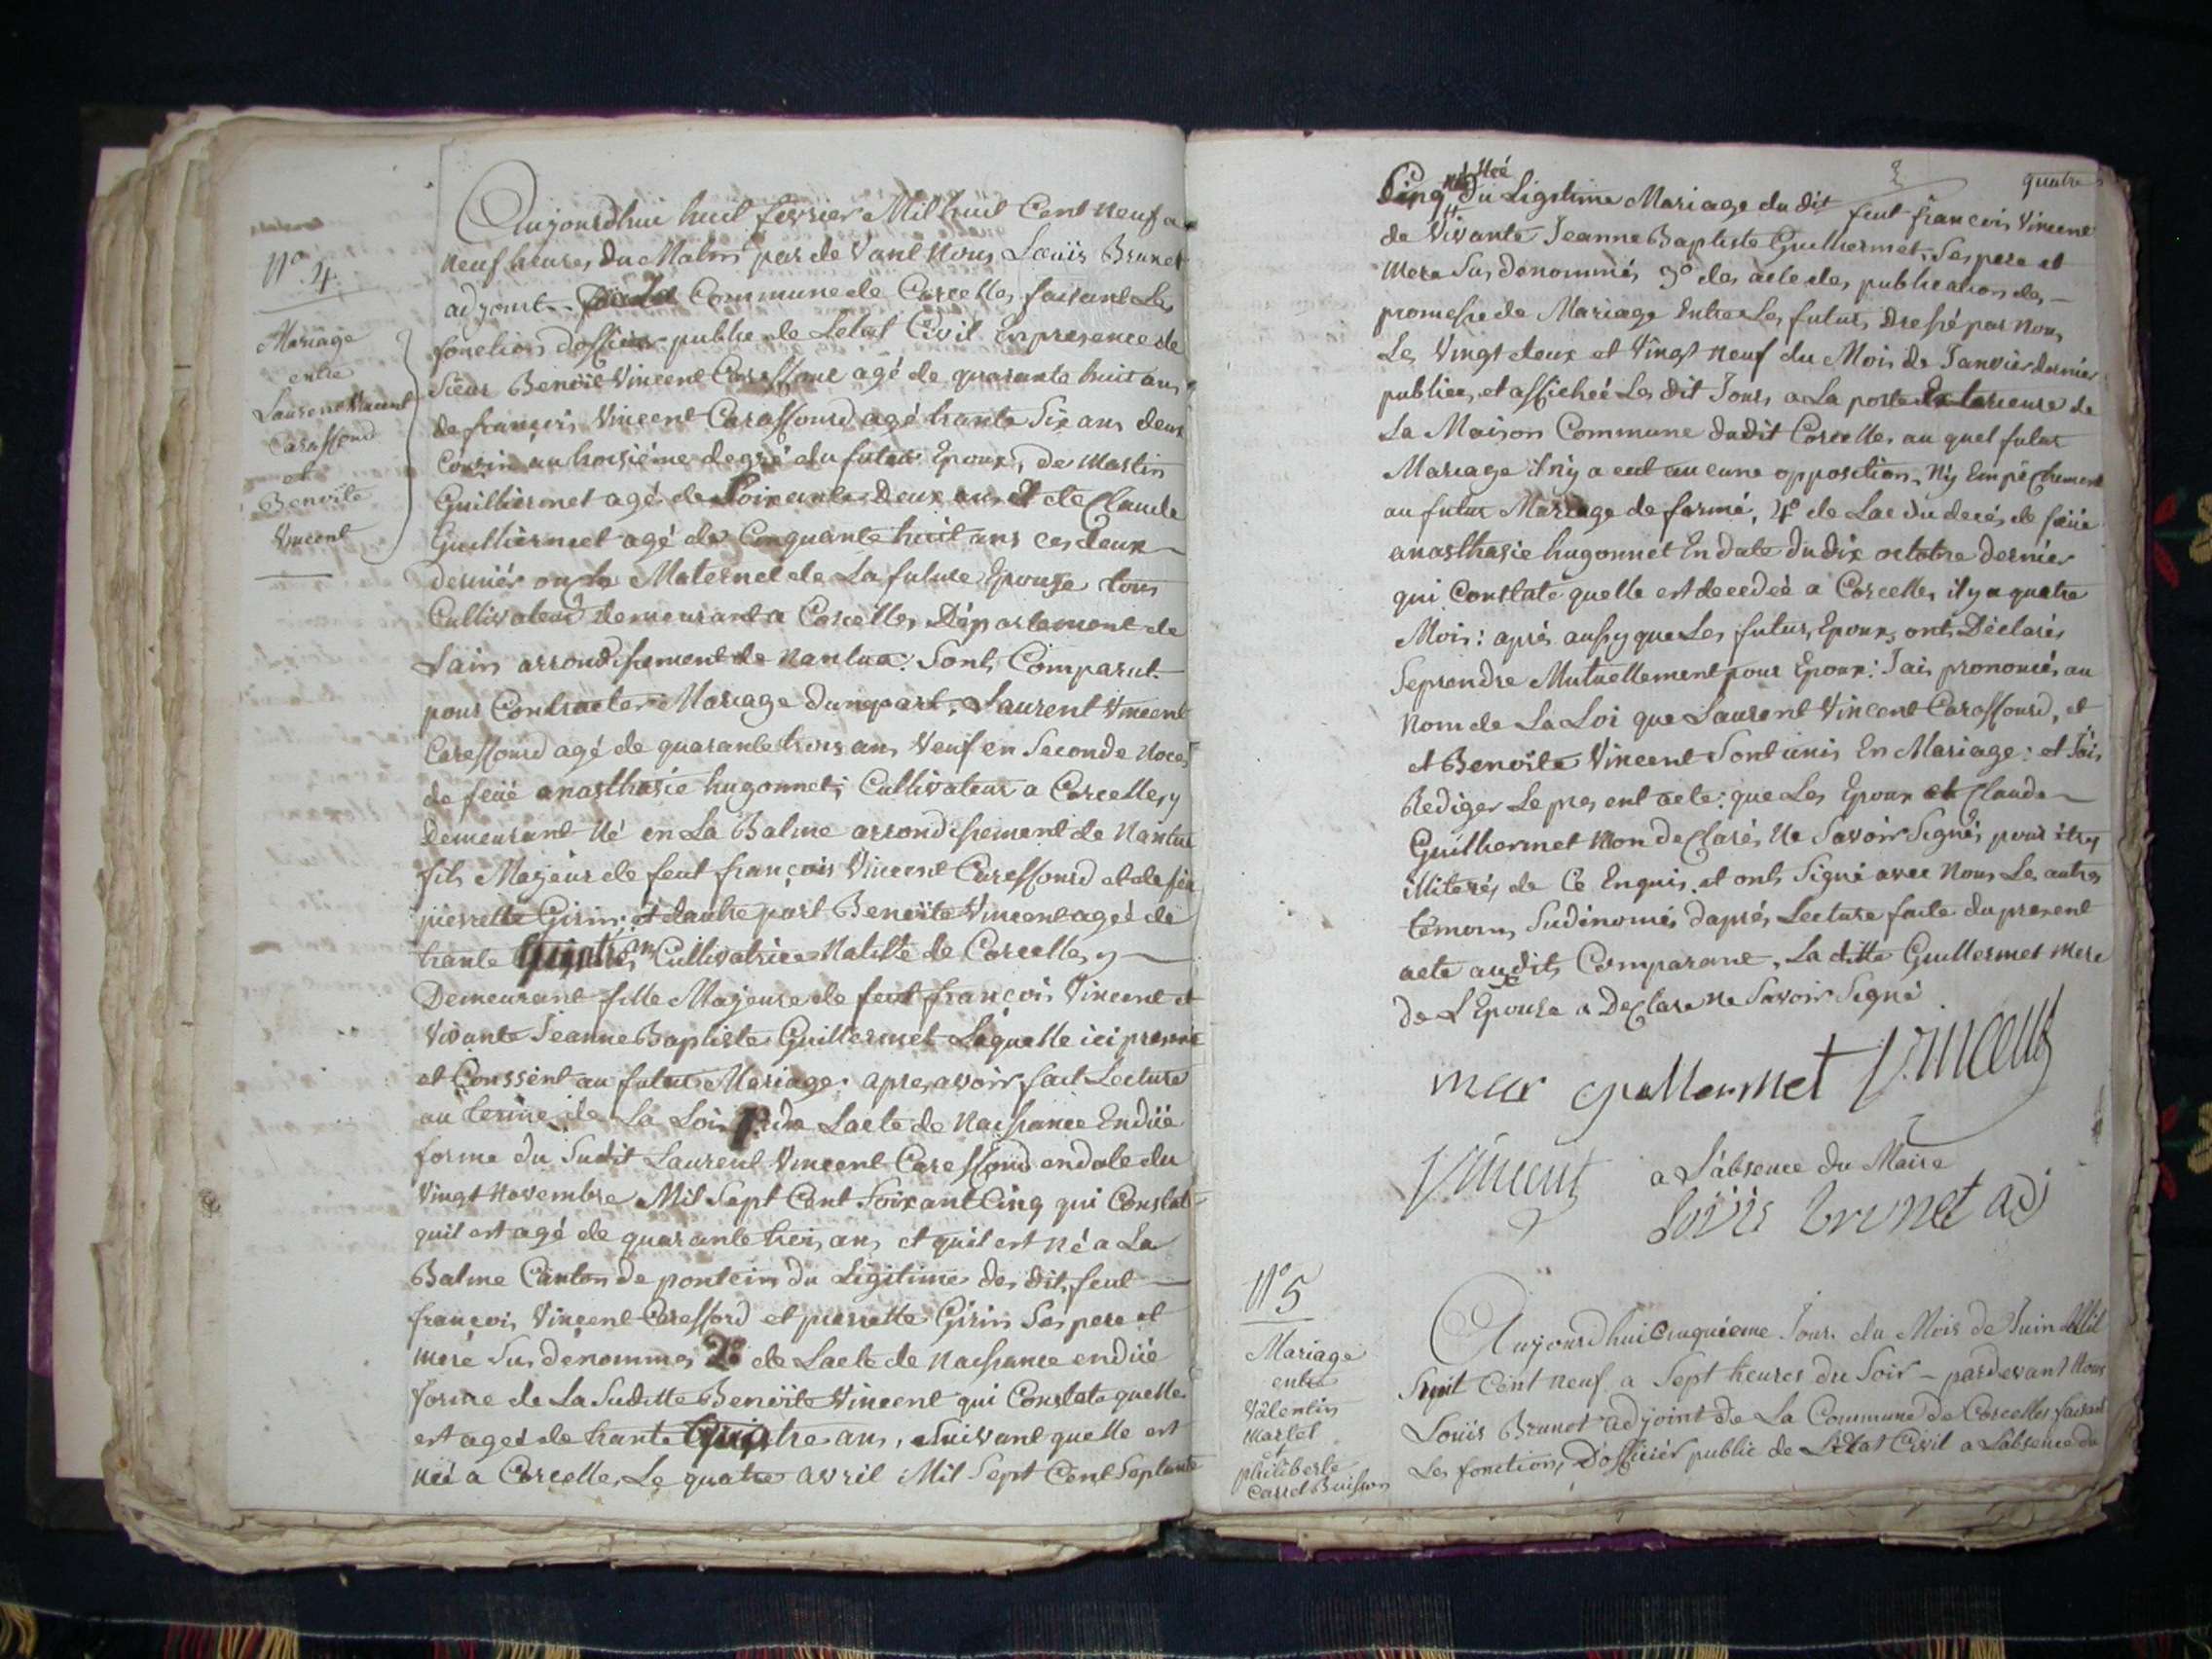 N° 4
Mariage
entre
Laurent Vincent
Carassoud
et
Benoite
Vincent
Aujourdhui huit fevrier Mil huit Cent neuf a
neuf heures du Matin par de vant nous Louis Brunet
adjoint Commune de Corcelles faisant Les
fonction dofficier public de Letat Civil En presence de
Sieur Benoit Vincent Caressoud agé de quarante huit ans
de françois Vincent Carassoud agé trante Six ans deux
Cousin au troisiéme degré du futur Epoux, de Martin
Guilliermet agé de Soixante Deux ans et de Claude
Guilliermet agé de Cinquante huit ans ces deux
derniér oncle Maternel de La future Epouse tous
Cultivateur demeurant a Corcelles Département de
Lain arrondissement de Nantua: Sont Comparut
pour Contracter Mariage dune part, Laurent Vincent
Caressoud agé de quarante trois ans Veuf en Seconde Noces
de feüe anasthasie hugonnet; Cultivateur a Corcelles y
Demeurant Né en La Balme arrondissement de Nantua
fils Majeur de feut françois Vincent Caressoud et de feu
pierrette Girin; et dautre part Benoite Vincent ageé de
trante quatre ans Cultivatrice Natifte de Corcelles y
Demeurant fille Majeure de feut françois Vincent et
Vivante Jeanne Baptiste Guillermet Laquelle ici presente
et Conssent au futur Mariage: apres avoir fait Lecture
au terme de La Loi 1° de Lacte de Naissance En düe
forme du Sudit Laurent Vincent Caressoud en date du
Vingt Novembre Mil Sept Cent Soixant Cinq qui Constate
quil est agé de quarante trois ans et quil est né a La
Balme Canton de poncin du Légitime des dit feut
françois Vincent Caressord et pierrette Girin Ses pere et
mere Sus denommes 2° de Lacte de Naissance en düe
forme de La Suditte Benoite Vincent qui Constate quelle
est ageé de trante quatre ans, Suivant quelle est
neé a Corcelles Le quatre avril Mil Sept Cent Septante
quatre
Cinq Neé du Ligitime Mariage du dit feut françois Vincent
de Vivante Jeanne Baptiste Guillermet, Ses pere et
mere Sus denommés 3° des acte des publication des
promesse de Mariage Entre Les futurs Dressé par nous
Les Vingt deux et Vingt neuf du Mois de Janvier dernier
publieé et afficheé Les dit Jours a La porte Exterieure de
La Maison Commune dudit Corcelles au quel futur
Mariage il ny a eut aucune opposition, Ny Empéchement
au futur Mariage de formé, 4° de Lac du decés de feüe
anasthasie hugonnet En date du dix octobre dernier
qui Constate quelle est decedeé a Corcelles il y a quatre
Mois: aprés aussy que Les futurs Epoux, ont Déclarés
Se prendre Mutuellement pour Epoux: Jais prononcés au
nom de La Loi que Laurent Vincent Carassoud, et
et Benoite Vincent Sont unis En Mariage: et Jais
Rediger Le present acte: que Les Epoux et Claude
Guilhermet Mon declarés Ne Savoir Signés pour étres
illiterés de Ce Enquis, et ont Signé avec Nous Les autres
témoins Sudénomés daprés Lecture faite du present
acte audits Comparant, La ditte Guillermet Mere
de L'Epouse a Declare ne Savoir Signé
guillermet Vincent
Vincent
a L'absence du Maire
Loüis brunet adj
N° 5
Mariage
entre
Valentin
Martel
et
philiberte
Carrel Buisson
Aujourdhui Cinquieme Jour du Mois de Juin Mil
huit Cent neuf a Sept heures du Soir - pardevant Nous
Louis Brunet adjoint de La Commune de Corcelles faisant
Les fonctions D'officiér public de L'état Civil a L'absence du